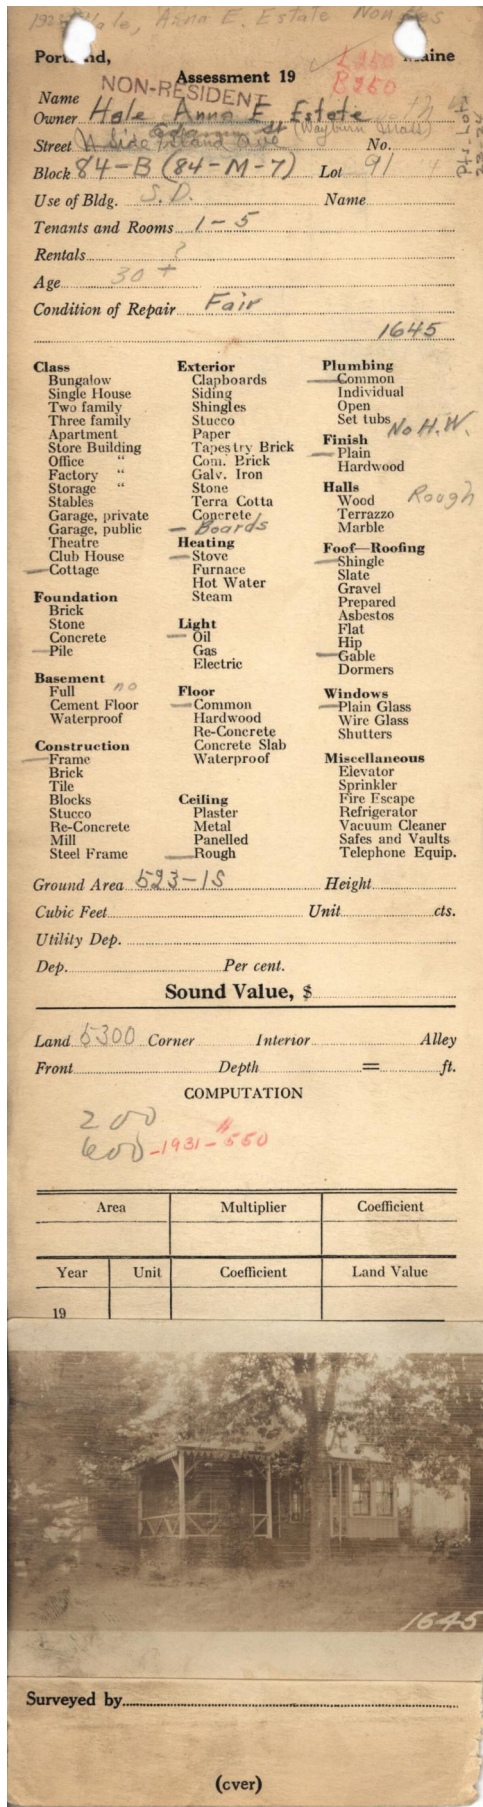 Hale, Anna E. Estate Non Res
Portland, Maine
L 250
B 250
Assessment 19
NON-RESIDENT
Name
Owner Hale Anna E Estate
Street N Side Island Ave St (Wayburn Mass) No.
Block 84-B (84-M-7) Lot 91
Use of Bldg. S.D. Name
Tenants and Rooms 1-5
Rentals ?
Age 30+
Condition of Repair Fair
1645
Class
Bungalow
Single House
Two family
Three family
Apartment
Store Building
Office "
Factory "
Storage "
Stables
Garage, private
Garage, public
Theatre
Club House
Cottage
Foundation
Brick
Stone
Concrete
Pile
Basement
Full no
Cement Floor
Waterproof
Construction
Frame
Brick
Tile
Blocks
Stucco
Re-Concrete
Mill
Steel Frame
Exterior
Clapboards
Siding
Shingles
Stucco
Paper
Tapestry Brick
Com. Brick
Galv. Iron
Stone
Terra Cotta
Concrete
Boards
Heating
Stove
Furnace
Hot Water
Steam
Light
Oil
Gas
Electric
Floor
Common
Hardwood
Re-Concrete
Concrete Slab
Waterproof
Ceiling
Plaster
Metal
Panelled
Rough
Plumbing
Common
Individual
Open
Set tubs No H.W.
Finish
Plain
Hardwood
Halls
Wood Rough
Terrazzo
Marble
Foof—Roofing
Shingle
Slate
Gravel
Prepared
Asbestos
Flat
Hip
Gable
Dormers
Windows
Plain Glass
Wire Glass
Shutters
Miscellaneous
Elevator
Sprinkler
Fire Escape
Refrigerator
Vacuum Cleaner
Safes and Vaults
Telephone Equip.
Ground Area 523-1S Height
Cubic Feet Unit cts.
Utility Dep.
Dep. Per cent.
Sound Value, $
Land 5300 Corner Interior Alley
Front Depth = ft.
COMPUTATION
200
600 -1931- $550
Area Multiplier Coefficient
Year Unit Coefficient Land Value
19
1645
Surveyed by
(cver)